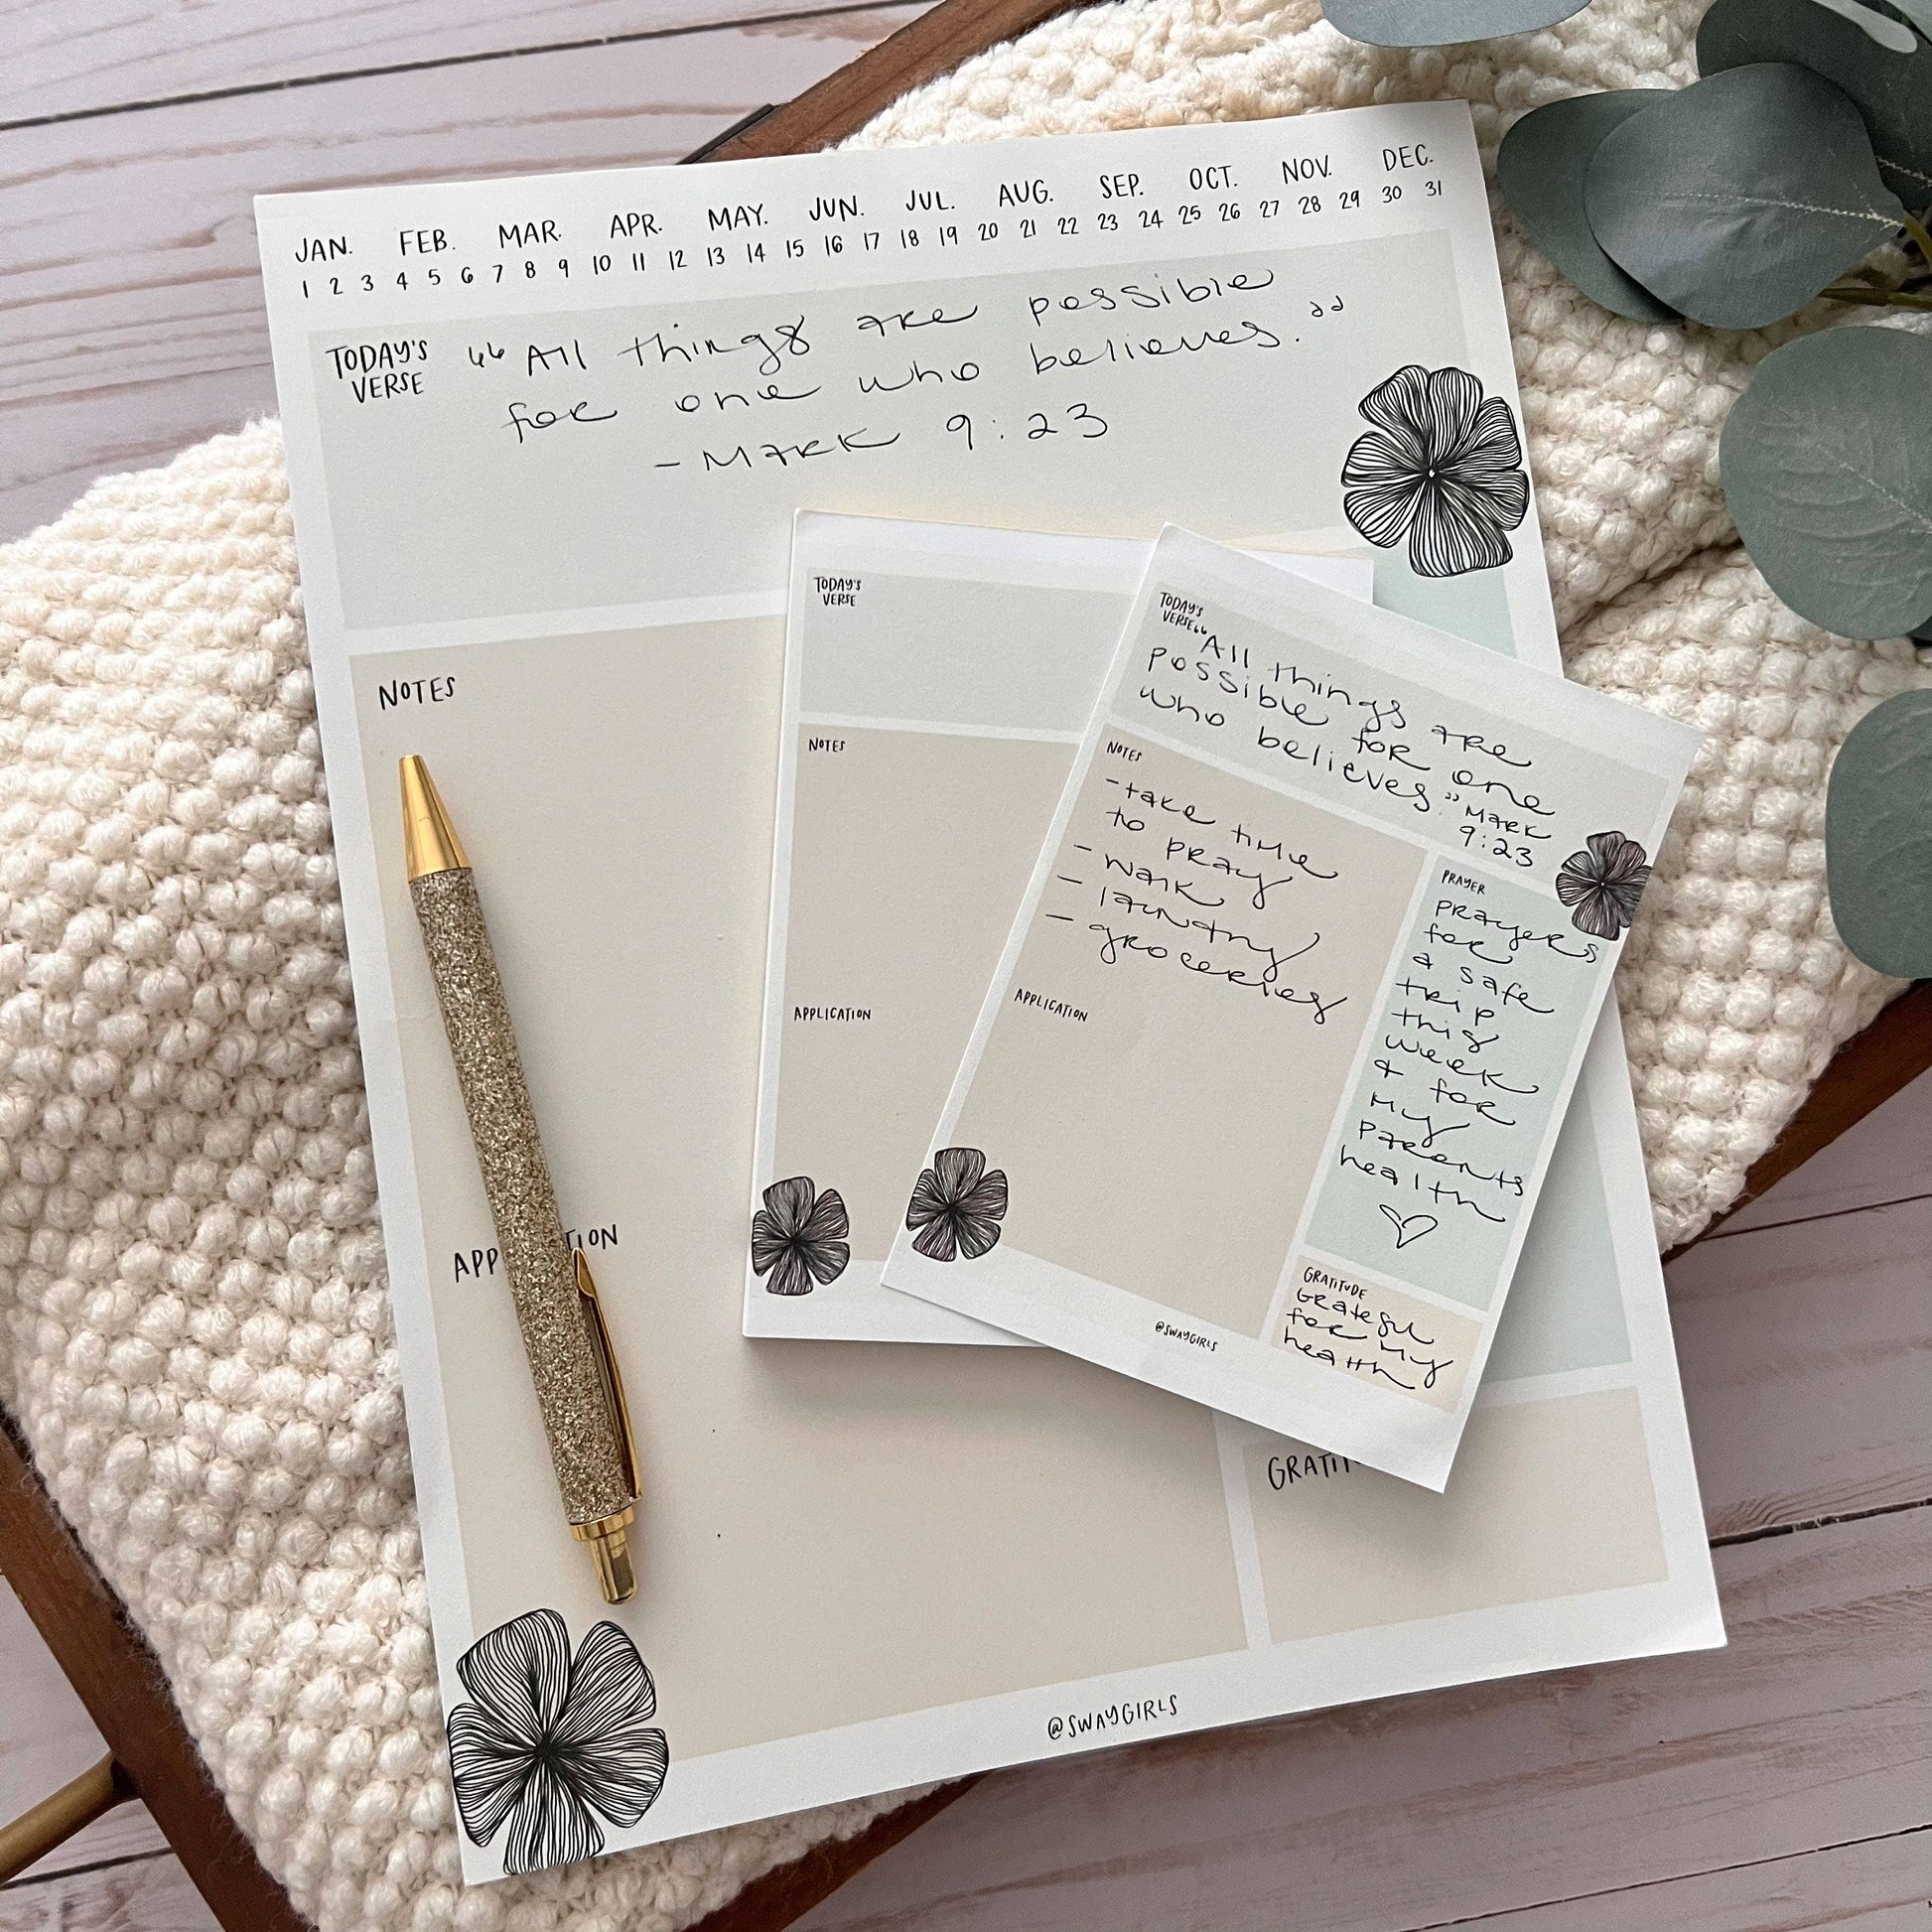 JAN. FEB. MAR. APR. MAY. JUN. JUL. AUG. SEP. OCT. NOV. DEC.
1 2 3 4 5 6 7 8 9 10 11 12 13 14 15 16 17 18 19 20 21 22 23 24 25 26 27 28 29 30 31
TODAY'S
VERSE
"All things are possible
for one who believes."
- Mark 9:23
NOTES
APPLICATION
GRATIT
@SWAYGIRLS
TODAY'S
VERSE
NOTES
APPLICATION
TODAY'S
VERSE
"All things are
possible for one
who believes." Mark
9:23
NOTES
- take time
to pray
- walk
- laundry
- groceries
APPLICATION
PRAYER
prayers
for
a safe
trip
this
week
& for
my
parents
health
GRATITUDE
Grateful
for my
health
@SWAYGIRLS